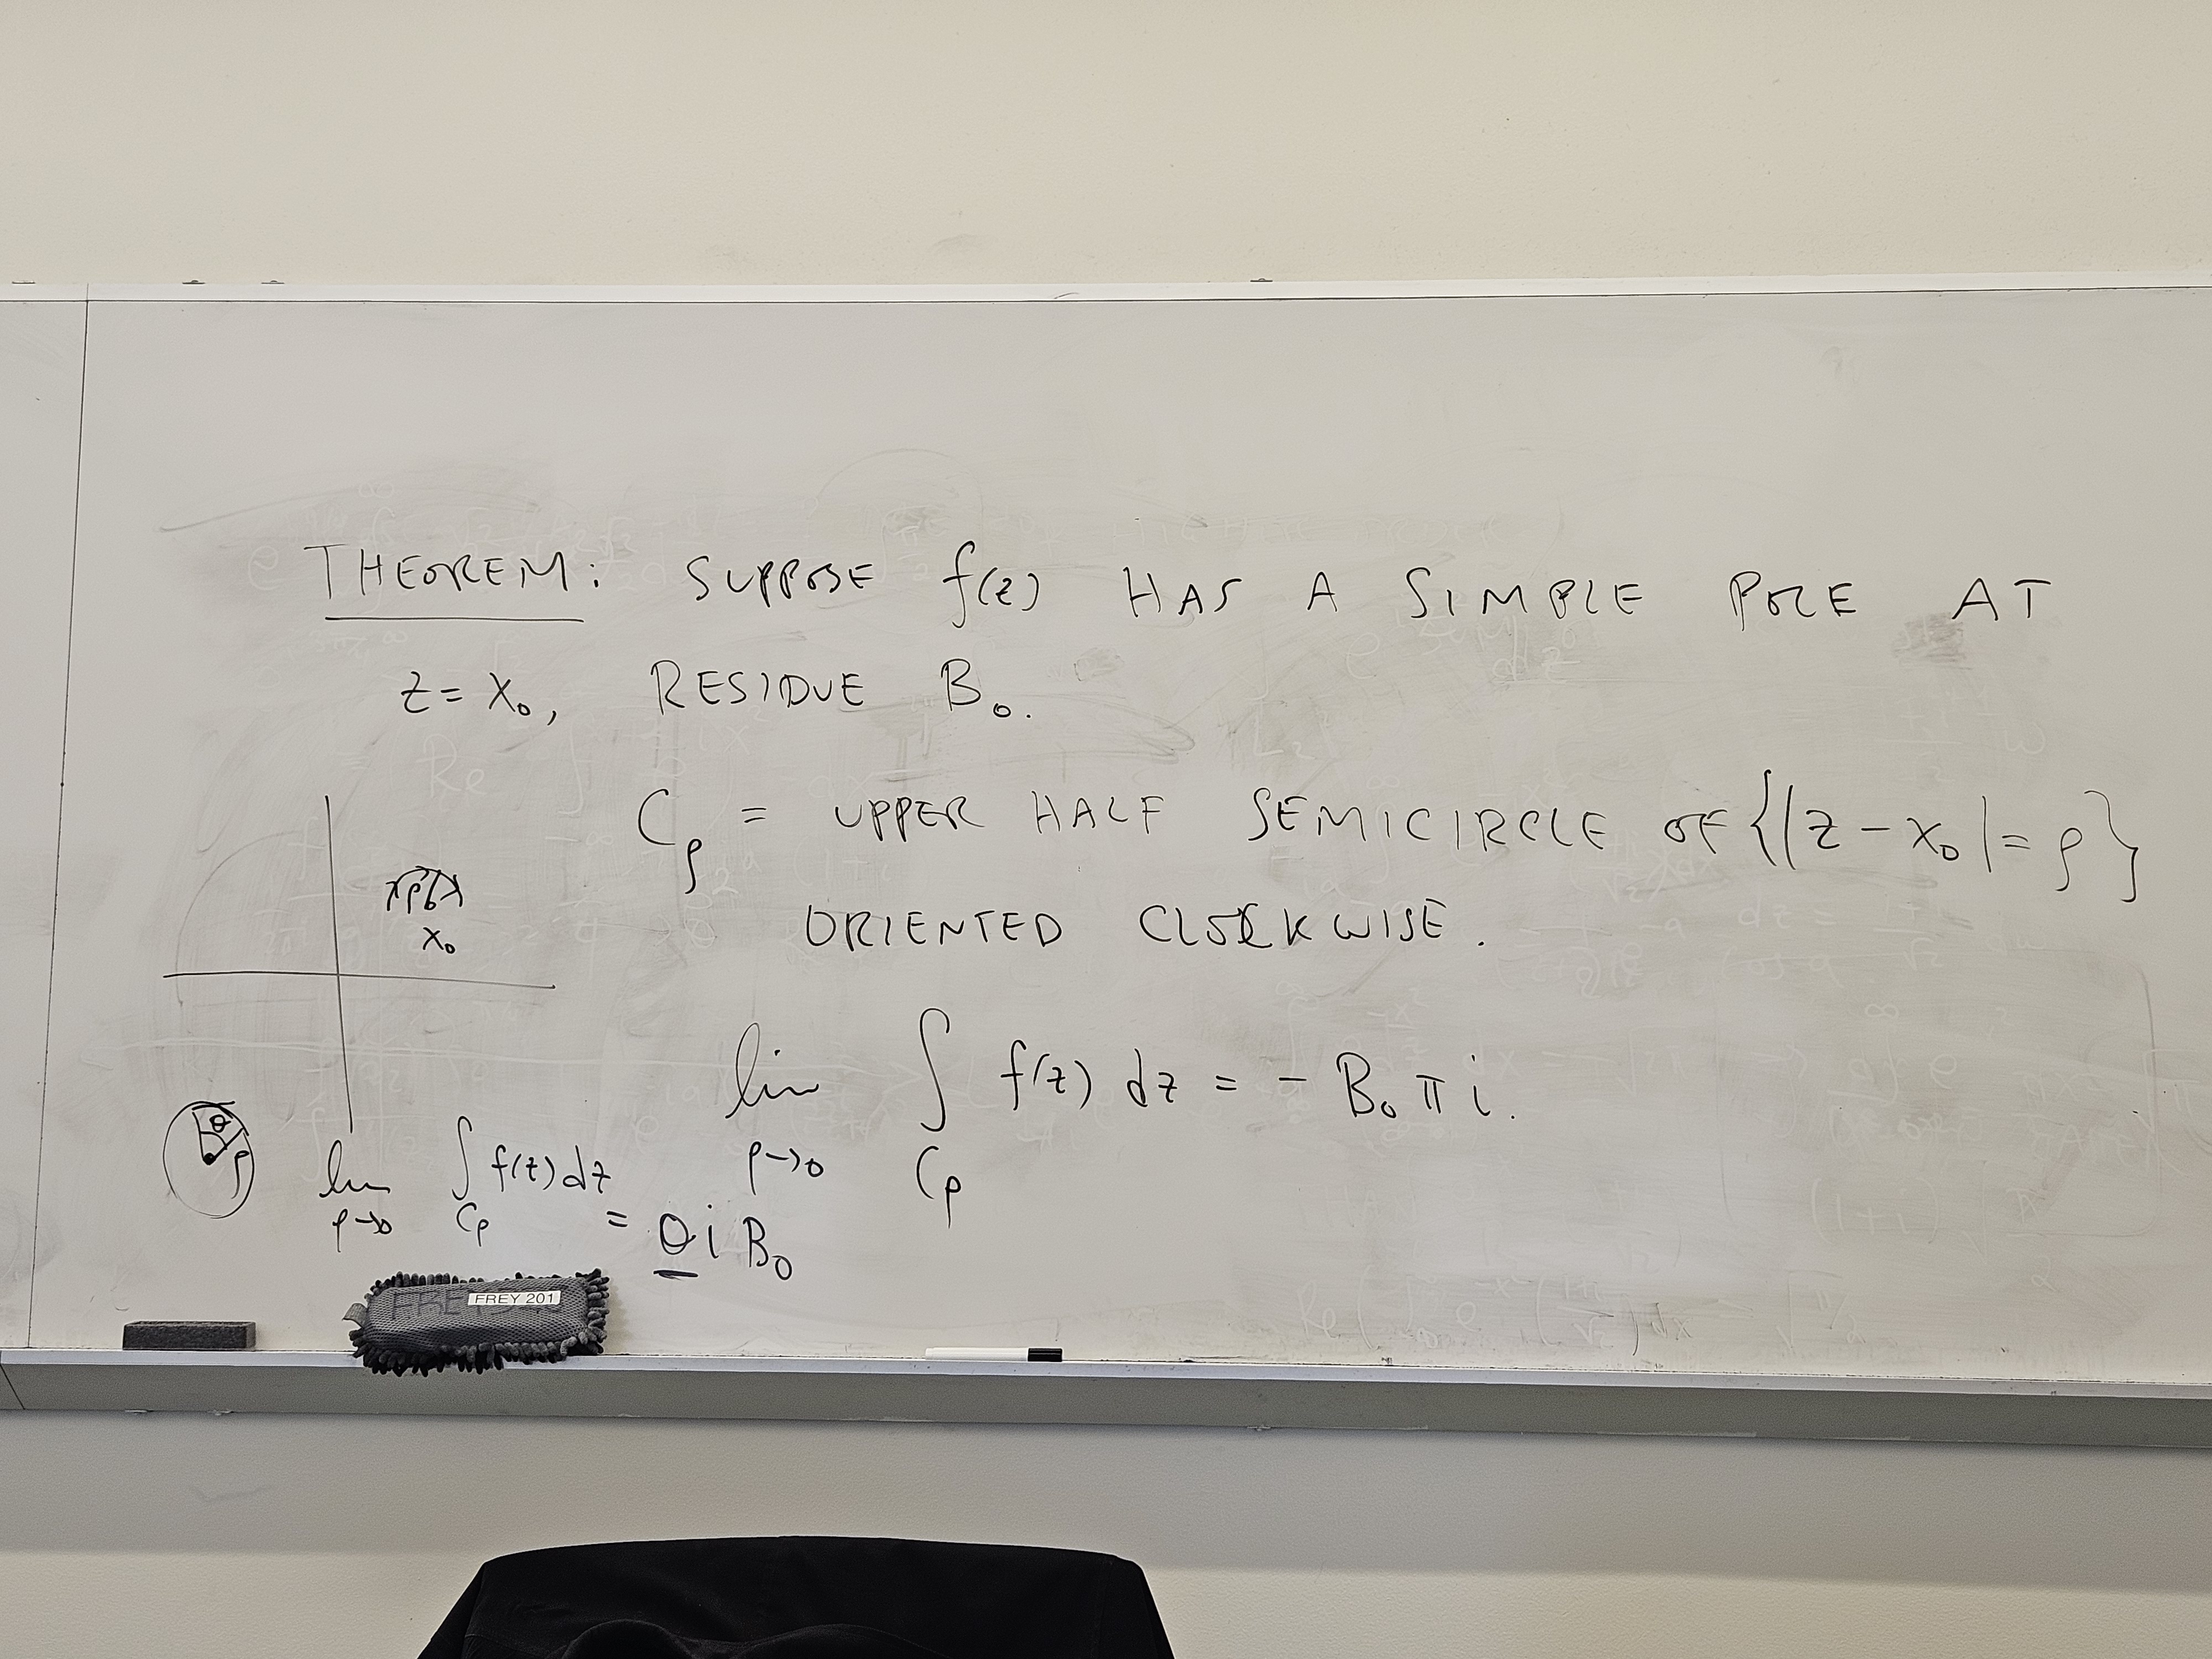 THEOREM: SUPPOSE f(z) HAS A SIMPLE POLE AT
z = x₀, RESIDUE B₀.
C_ρ = UPPER HALF SEMICIRCLE OF {|z - x₀| = ρ}
ORIENTED CLOCKWISE.
ρ
x₀
lim ∫ f(z) dz = - B₀ π i.
ρ→0 C_ρ
θ
ρ
lim ∫ f(z) dz
ρ→0 C_ρ
= θ i B₀
FREY 201